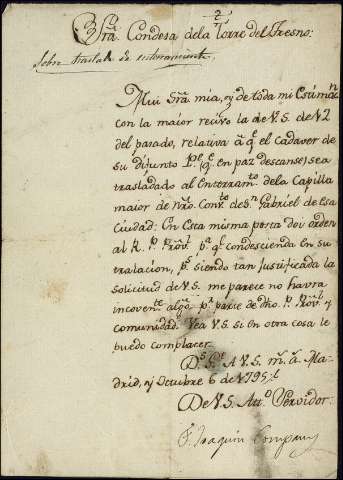 Srâ. Condesa dela Torre del Fresno:
sobre traslado de enterramiento.
Mui Srâ. mia, y de toda mi Estimn.
con la maior recivo la de V.S. de 12
del pasado, relativa à q̃ el Cadaver de
su difunto Pe. (q̃ en paz descanse) sea
trasladado al Enterramto. dela Capilla
maior de ñro. Convto. de Sn. Gabriel de esa
Ciudad: En esta misma posta doi orden
al R. P. Provl. pa. q̃ condescienda en su
tralacion, ps. siendo tan justificada la
solicitud de V.S. me parece no havra
incovente. algo. pr. parte de dho. P. Provl. y
comunidad. Vea V.S. si en otra cosa le
puedo complacer.
Ds. gue. A V.S. ms. as. Ma-
drid, y Octubre 6 de 1795,,
De V.S. Atto. Servidor:
F. Joaquin Company